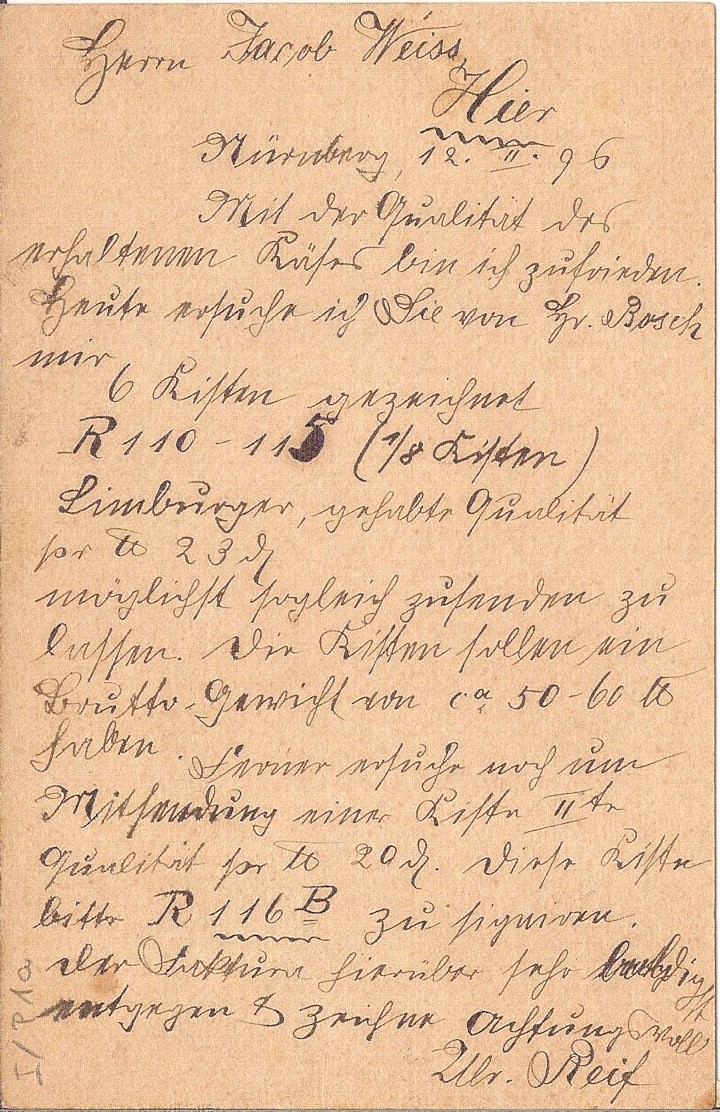 Herrn Jacob Weiss,
Hier
Nürnberg, 12. II. 96
Mit der Qualität des
erhaltenen Käses bin ich zufrieden.
Heute ersuche ich Sie von Hr. Bosch
mir
6 Kisten gezeichnet
R 110 - 115 (1/8 Kisten)
Limburger, gehabte Qualität
pr ℔ 23 ₰
möglichst sogleich zusenden zu
lassen. Die Kisten sollen ein
Brutto-Gewicht von ca. 50-60 ℔
haben.
Ferner ersuche noch um
Mitsendung einer Kiste IIte
Qualität pr ℔ 20 ₰. Diese Kiste
bitte R 116 B zu signiren.
Der Faktura hierüber sehe baldigst
entgegen & zeichne Achtungsvoll
Ulr. Reif
I/P1a